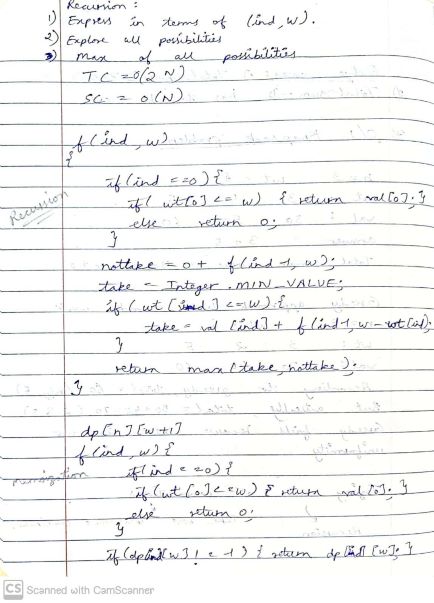 Recursion :
1) Express in terms of (ind, W).
2) Explore all possibilities
3) Max of all possibilities
TC = O(2 N)
SC = O(N)
f (ind, w)
{
if (ind == 0) {
if ( wt[0] <= w) { return val[0]; }
else return 0;
}
Recussion
nottake = 0 + f(ind-1, w);
take = Integer.MIN_VALUE;
if ( wt [ind] <= W) {
take = val [ind] + f (ind-1, w - wt[ind]);
}
return max (take, nottake);
}
dp[n][w+1]
f(ind, w) {
memoization
if(ind = =0) {
if (wt [0] <= w) { return val[0]; }
else return 0;
}
if (dp[ind][w] ! = -1) { return dp[ind] [w]; }
CS Scanned with CamScanner